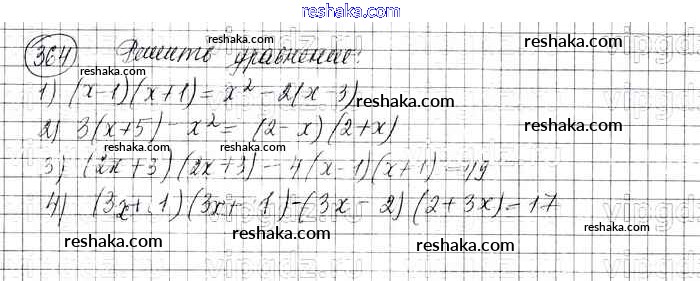 reshaka.com
364 Решить уравнение:
reshaka.com
reshaka.com
1) (x-1)(x+1) = x² - 2(x-3)
reshaka.com
2) 3(x+5) - x² = (2-x)(2+x)
reshaka.com
reshaka.com
3) (2x+3)(2x+3) - 4(x-1)(x+1) = 49
reshaka.com
4) (3x+1)(3x+1) - (3x-2)(2+3x) = 17
reshaka.com
reshaka.com
reshaka.com
reshaka.com